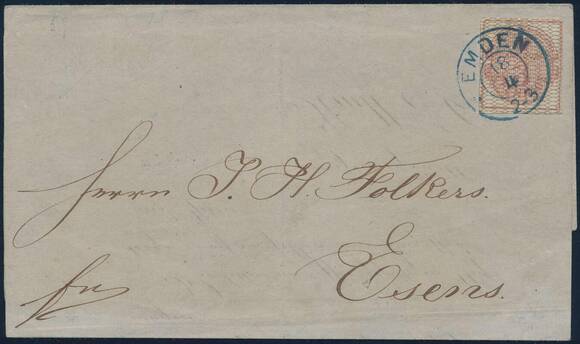 EMDEN
18
4
2-3
Herrn J. H. Folkers.
Esens.
fr